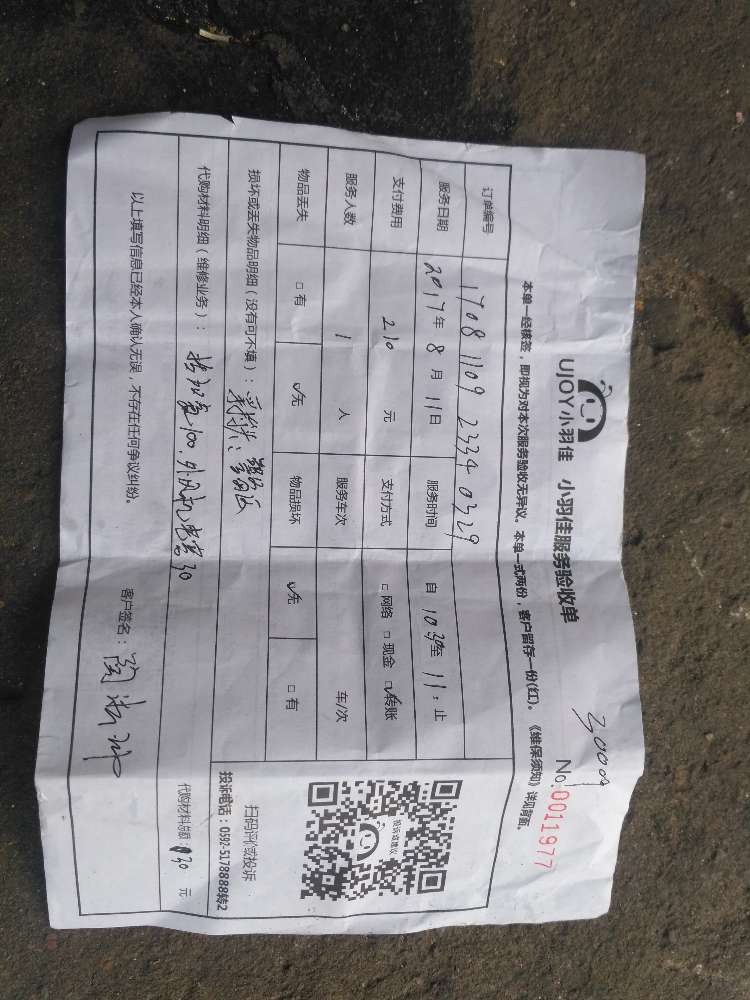 30009
UJOY小羽佳 小羽佳服务验收单 No.0011977
本单一经核签，即视为对本次服务验收无异议。本单一式两份，客户留存一份(红)。《维保须知》详见背面。
订单编号 1708 1109 2334 0329
服务日期 2017年 8月 11日 服务时间 自 10:30至 11: 止
支付费用 210 元 支付方式 □网络 □现金 ☑转账
服务人数 1 人 服务车次 车/次
物品丢失 □有 ☑无 物品损坏 ☑无 □有
损坏或丢失物品明细（没有可不填）：
代购材料明细（维修业务）： 100.外风机电容30
代购材料总额： 130 元
以上填写信息已经本人确认无误，不存在任何争议纠纷。
客户签名：
投诉或建议
扫码评价或投诉
投诉电话：0592-5178888转2